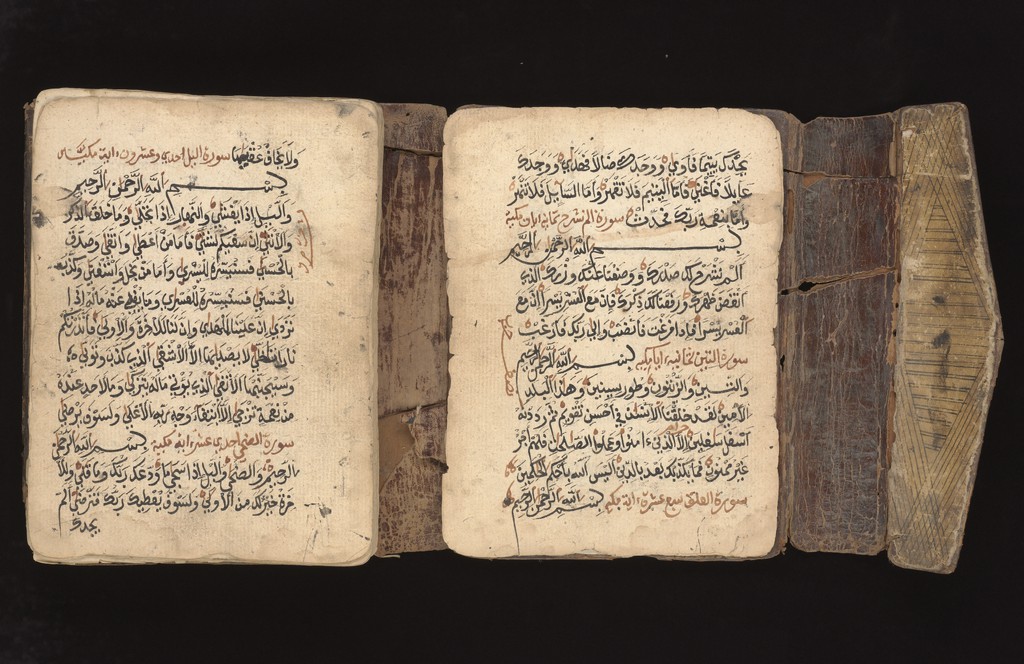 ولا يخاف عقبيها سورة اليل احدى وعشرون ءاية مكية
بسم الله الرحمن الرحيم
واليل إذا يغشى والنهار إذا تجلى وما خلق الذكر
والأنثى إن سعيكم لشتى فأما من أعطى واتقى وصدق
بالحسنى فسنيسره لليسرى وأما من بخل واستغنى وكذب
بالحسنى فسنيسره للعسرى وما يغنى عنه ماله إذا
تردى إن علينا للهدى وإن لنا للأخرة والأولى فأنذرتكم
نارا تلظى لا يصليها إلا الأشقى الذى كذب وتولى
وسيجنبها الأتقى الذى يوتى ماله يتزكى وما لأحد عنده
من نعمة تجزى إلا ابتغاء وجه ربه الأعلى ولسوف يرضى
سورة الضحى احدى عشر ءاية مكية بسم الله الرحمن
الرحيم والضحى واليل إذا سجى ما ودعك ربك وما قلى وللأ
خرة خير لك من الأولى ولسوف يعطيك ربك فترضى ألم
يجدك
يجدك يتيما فاوى ووجدك ضالا فهدى ووجدك
عايلا فأغنى فأما اليتيم فلا تقهر وأما السايل فلا تنهر
وأما بنعمة ربك فحدث سورة الم نشرح ثمان ايات مكية
بسم الله الرحمن الرحيم
ألم نشرح لك صدرك ووضعنا عنك وزرك الذى
أنقض ظهرك ورفعنا لك ذكرك فإن مع العسر يسرا إن مع
العسر يسرا فإذا فرغت فانصب وإلى ربك فارغب
سورة التين ثمانية ايات مكية بسم الله الرحمن الرحيم
والتين والزيتون وطور سينين وهذا البلد
الأمين لقد خلقنا الإنسن فى أحسن تقويم ثم رددنه
أسفل سفلين إلا الذين ءامنوا وعملوا الصلحت فلهم أجر
غير ممنون فما يكذبك بعد بالدين أليس الله بأحكم الحكمين
سورة العلق سبع عشرة ءاية مكية بسم الله الرحمن الرحيم